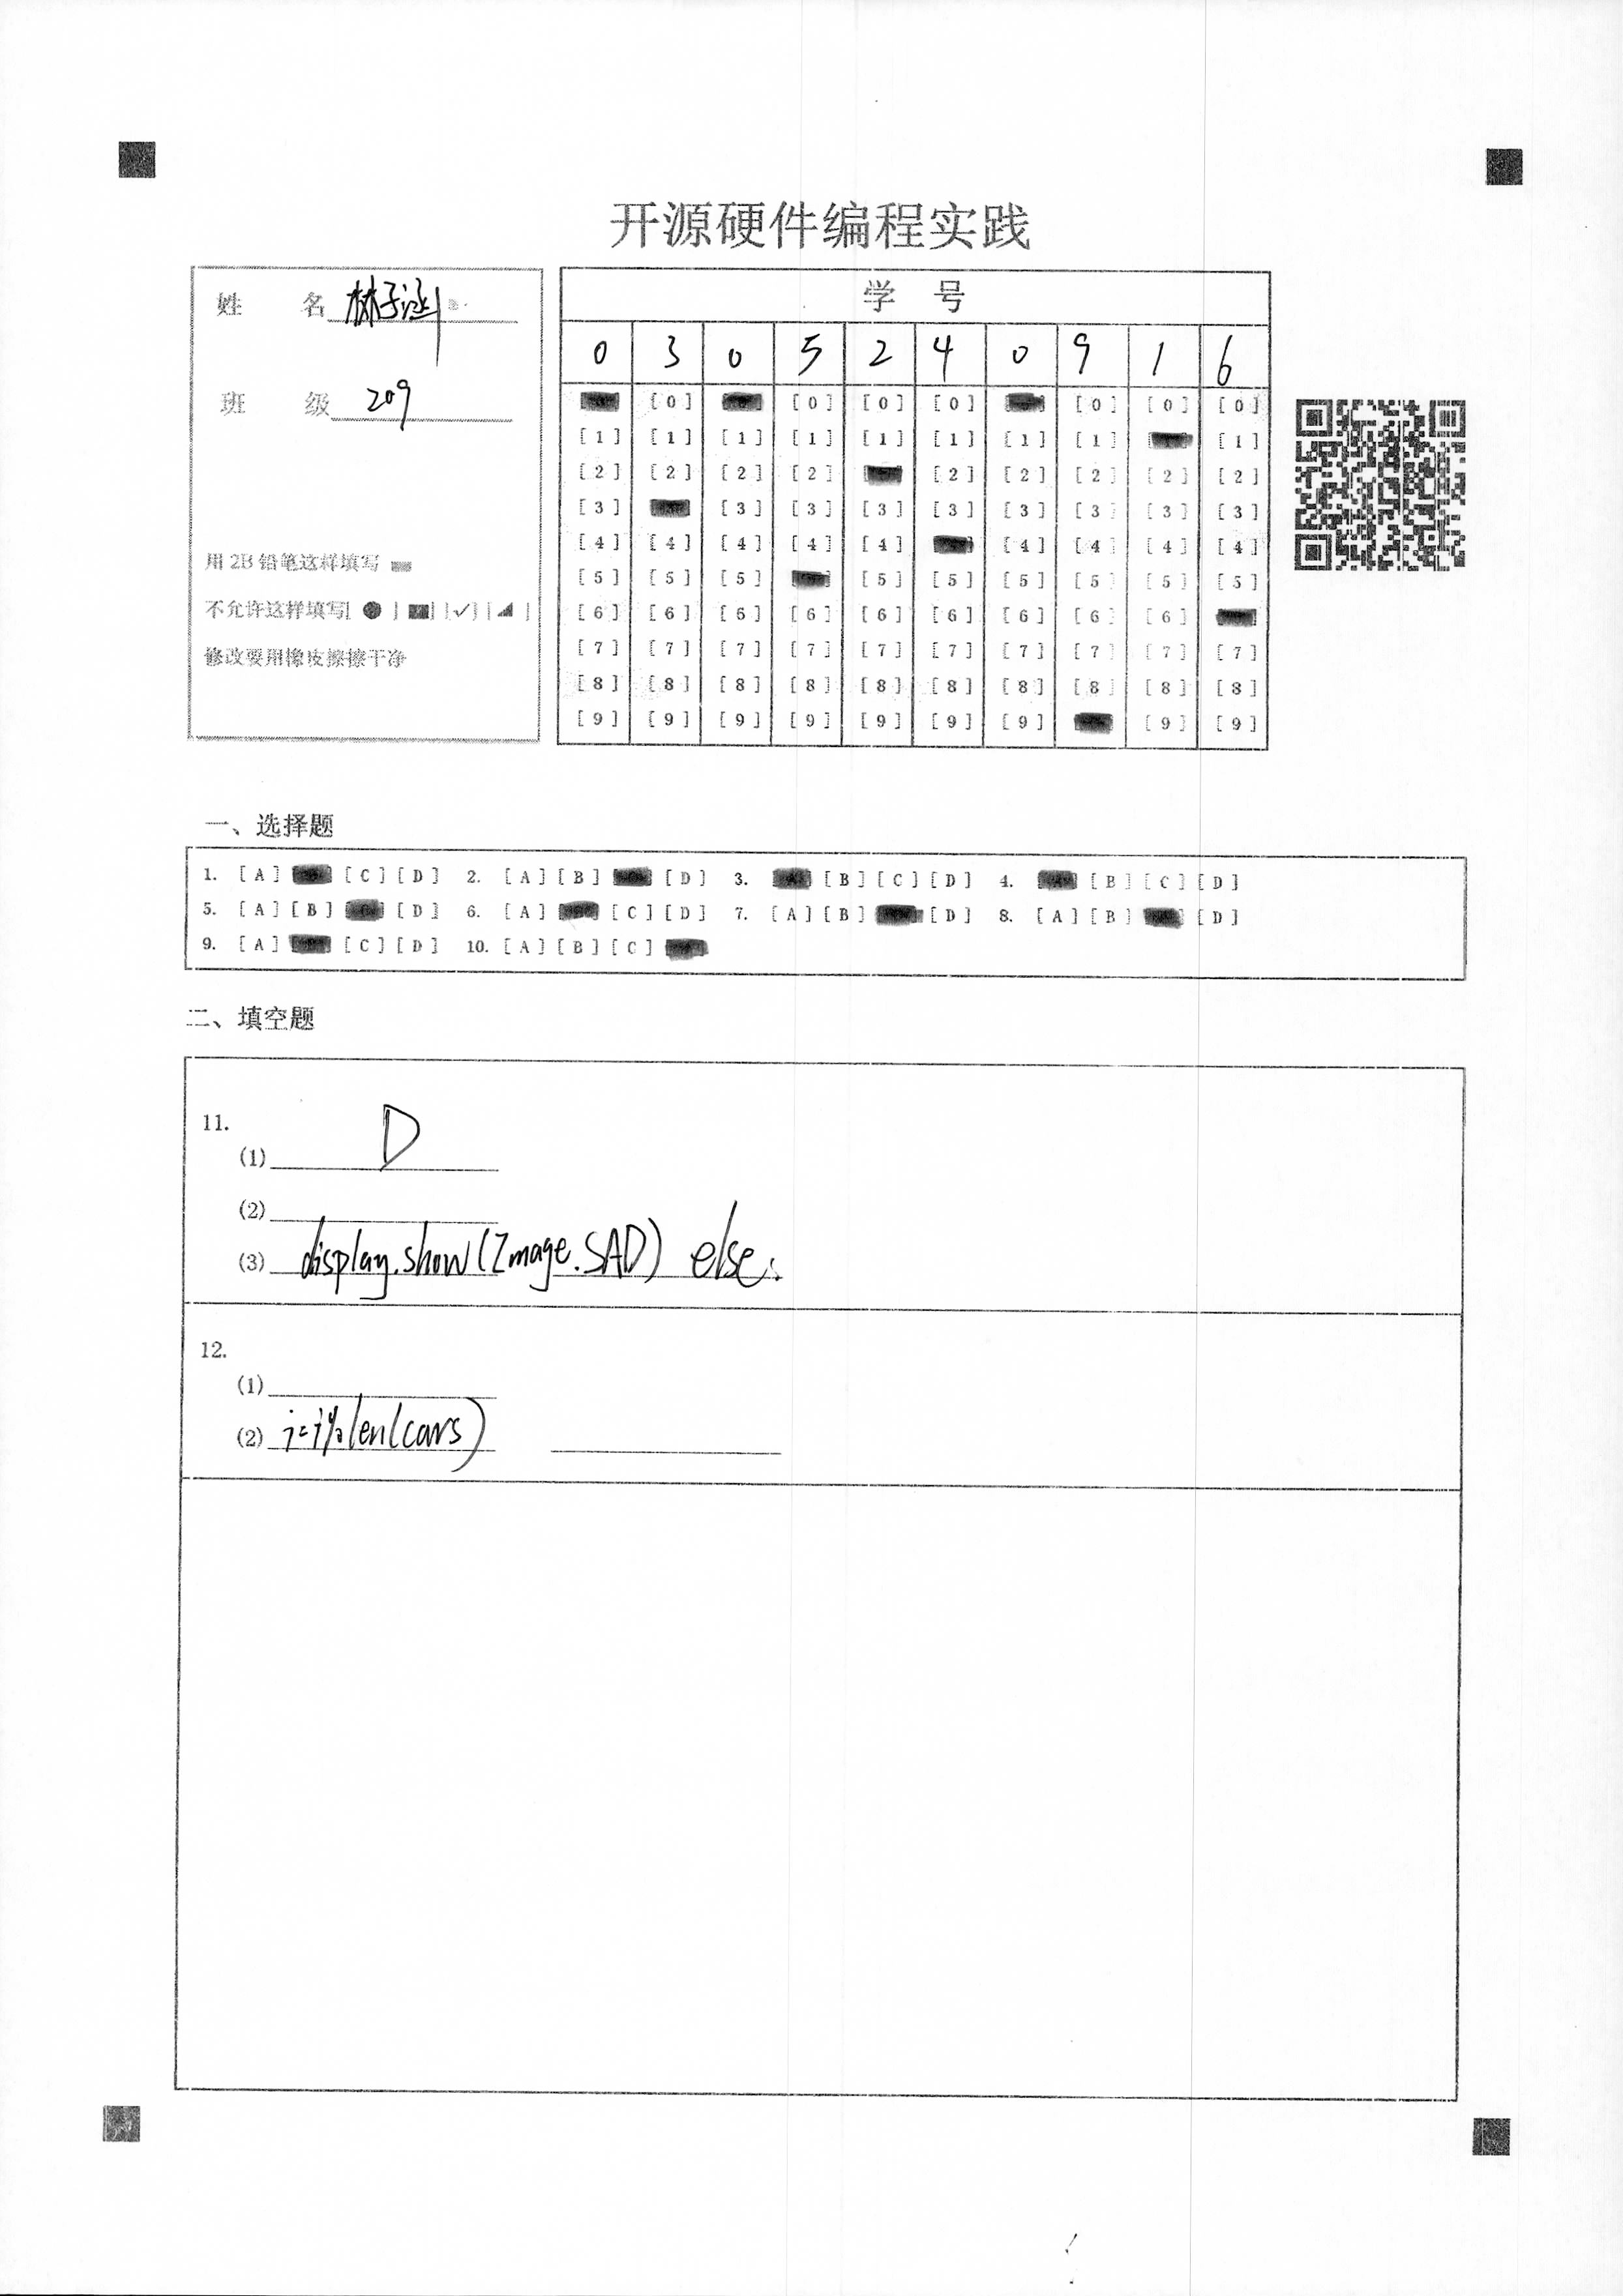 开源硬件编程实践
姓 名 林子涵
班 级 209
用 2B 铅笔这样填写
不允许这样填写[ ● ] [■] [✓] [◢ ]
修改要用橡皮擦擦干净
学 号
0 3 0 5 2 4 0 9 1 6
[0] [0] [0] [0] [0] [0] [0]
[1] [1] [1] [1] [1] [1] [1] [1] [1]
[2] [2] [2] [2] [2] [2] [2] [2] [2]
[3] [3] [3] [3] [3] [3] [3] [3] [3]
[4] [4] [4] [4] [4] [4] [4] [4] [4]
[5] [5] [5] [5] [5] [5] [5] [5] [5]
[6] [6] [6] [6] [6] [6] [6] [6] [6]
[7] [7] [7] [7] [7] [7] [7] [7] [7] [7]
[8] [8] [8] [8] [8] [8] [8] [8] [8] [8]
[9] [9] [9] [9] [9] [9] [9] [9] [9]
一、选择题
1. [A] [C] [D] 2. [A] [B] [D] 3. [B] [C] [D] 4. [B] [C] [D]
5. [A] [B] [D] 6. [A] [C] [D] 7. [A] [B] [D] 8. [A] [B] [D]
9. [A] [C] [D] 10. [A] [B] [C]
二、填空题
11.
(1) D
(2)
(3) display.show(Image.SAD) else:
12.
(1)
(2) i=i%len(cars)